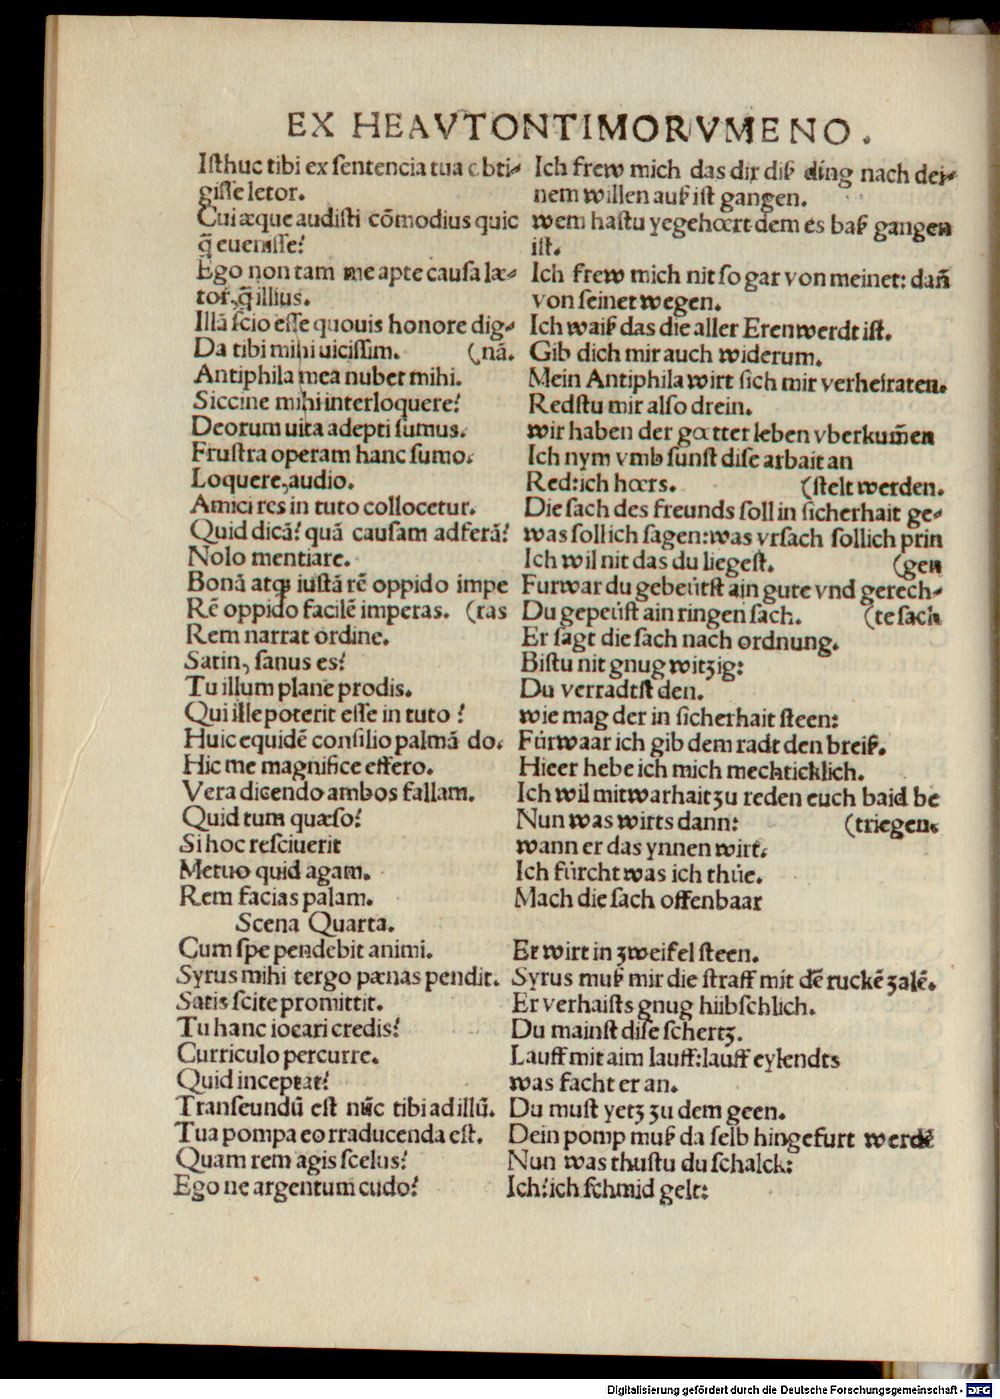 EX HEAVTONTIMORVMENO.
Isthuc tibi ex sentencia tua obti-
gisse letor.
Cui æque audisti cōmodius quic
q̄ euenisse?
Ego non tam me apte causa læ-
tor, q̄ illius.
Illā scio esse quouis honore dig-
Da tibi mihi uicissim. (nā.
Antiphila mea nubet mihi.
Siccine mihi interloquere?
Deorum uita adepti sumus.
Frustra operam hanc sumo.
Loquere, audio.
Amici res in tuto collocetur.
Quid dicā? quā causam adferā?
Nolo mentiare.
Bonā atq; iustā rē oppido impe
Rē oppido facilē imperas. (ras
Rem narrat ordine.
Satin, sanus es?
Tu illum plane prodis.
Qui ille poterit esse in tuto?
Huic equidē consilio palmā do.
Hic me magnifice effero.
Vera dicendo ambos fallam.
Quid tum quæso?
Si hoc resciuerit
Metuo quid agam.
Rem facias palam.
Scena Quarta.
Cum spe pendebit animi.
Syrus mihi tergo pœnas pendit.
Satis scite promittit.
Tu hanc iocari credis?
Curriculo percurre.
Quid inceptat?
Transeundū est nūc tibi ad illū.
Tua pompa eo traducenda est.
Quam rem agis scelus?
Ego ne argentum cudo?
Ich frew mich das dir diß ding nach dei-
nem willen auß ist gangen.
wem hastu yegehœrt dem es baß gangen
ist.
Ich frew mich nit so gar von meinet: dañ
von seinet wegen.
Ich waiß das die aller Eren werdt ist.
Gib dich mir auch widerum.
Mein Antiphila wirt sich mir verheiraten.
Redstu mir also drein.
wir haben der gœtter leben vberkum̃en
Ich nym vmb sunst dise arbait an
Red: ich hœrs. (stelt werden.
Die sach des freunds soll in sicherhait ge-
was soll ich sagen: was vrsach soll ich prin
Ich wil nit das du liegest. (gen
Furwar du gebeütst ain gute vnd gerech-
Du gepeüst ain ringen sach. (te sach
Er sagt die sach nach ordnung.
Bistu nit gnug witzig:
Du verradtst den.
wie mag der in sicherhait steen:
Fürwaar ich gib dem radt den breiß.
Hieer hebe ich mich mechticklich.
Ich wil mit warhait zu reden euch baid be
Nun was wirts dann: (triegen.
wann er das ynnen wirt.
Ich fürcht was ich thüe.
Mach die sach offenbaar
Er wirt in zweifel steen.
Syrus muß mir die straff mit dē ruckē zalē.
Er verhaists gnug hübschlich.
Du mainst dise schertz.
Lauff mit aim lauff: lauff eylendts
was facht er an.
Du must yetz zu dem geen.
Dein pomp muß da selb hingefurt werdē
Nun was thustu du schalck:
Ich? ich schmid gelt:
Digitalisierung gefördert durch die Deutsche Forschungsgemeinschaft - DFG